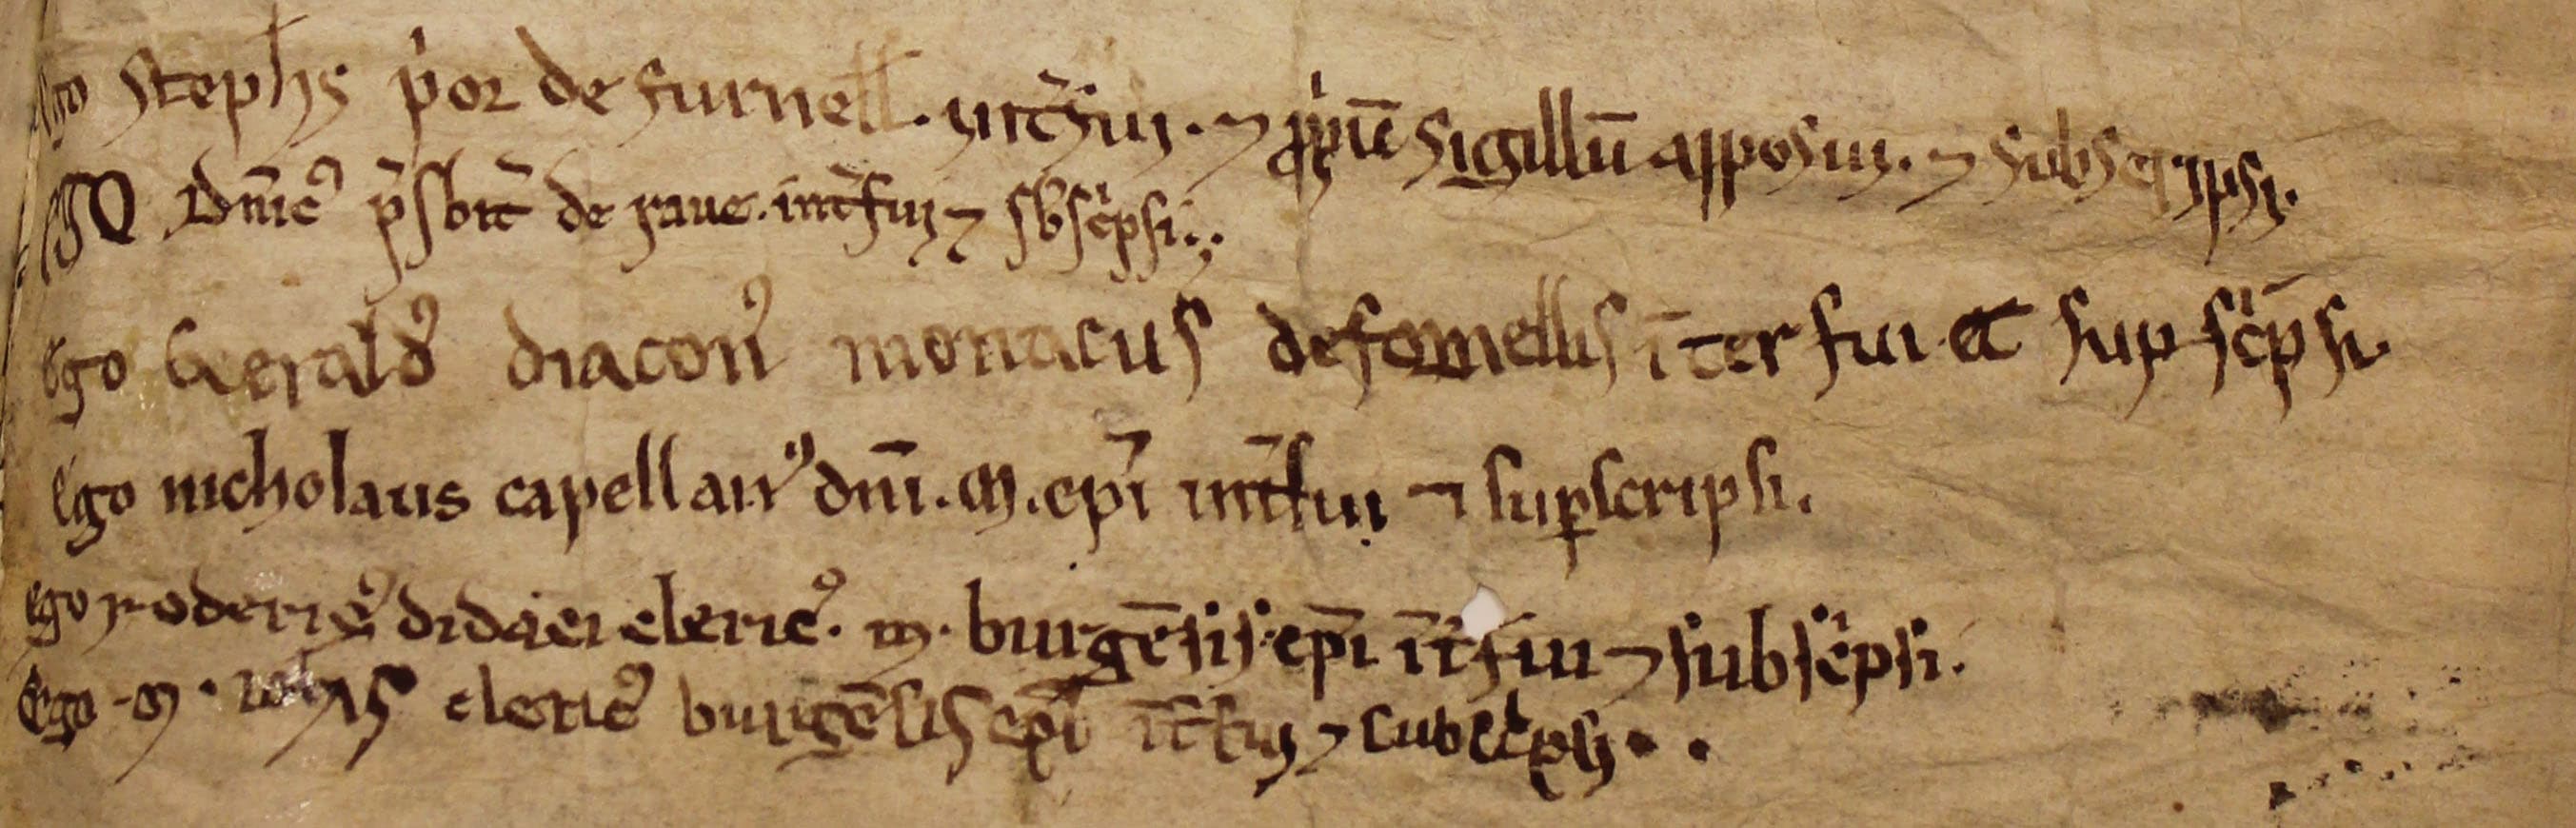 Ego Stephs prior de furnell. int̄fui. ⁊ ꝓpiū sigillū apposui. ⁊ subscripsi.
Ego Dn̄icꝰ p̄sbit̄ de int̄fui ⁊ sb̄sc͛psi.
Ego Geraldꝰ diaconꝰ monacus de fornellis īter fui et supsc͛p̄si.
Ego nicholaus capellanꝰ dn̄i. M. ep̄i int̄fui ⁊ suꝑscripsi.
Ego rodericꝰ didaci clericꝰ. m. burgēsis ep̄i īt̄fui ⁊ subsc͛psi.
Ego M. clericꝰ burgēsis ep̄i īt̄fui ⁊ subsc͛psi..